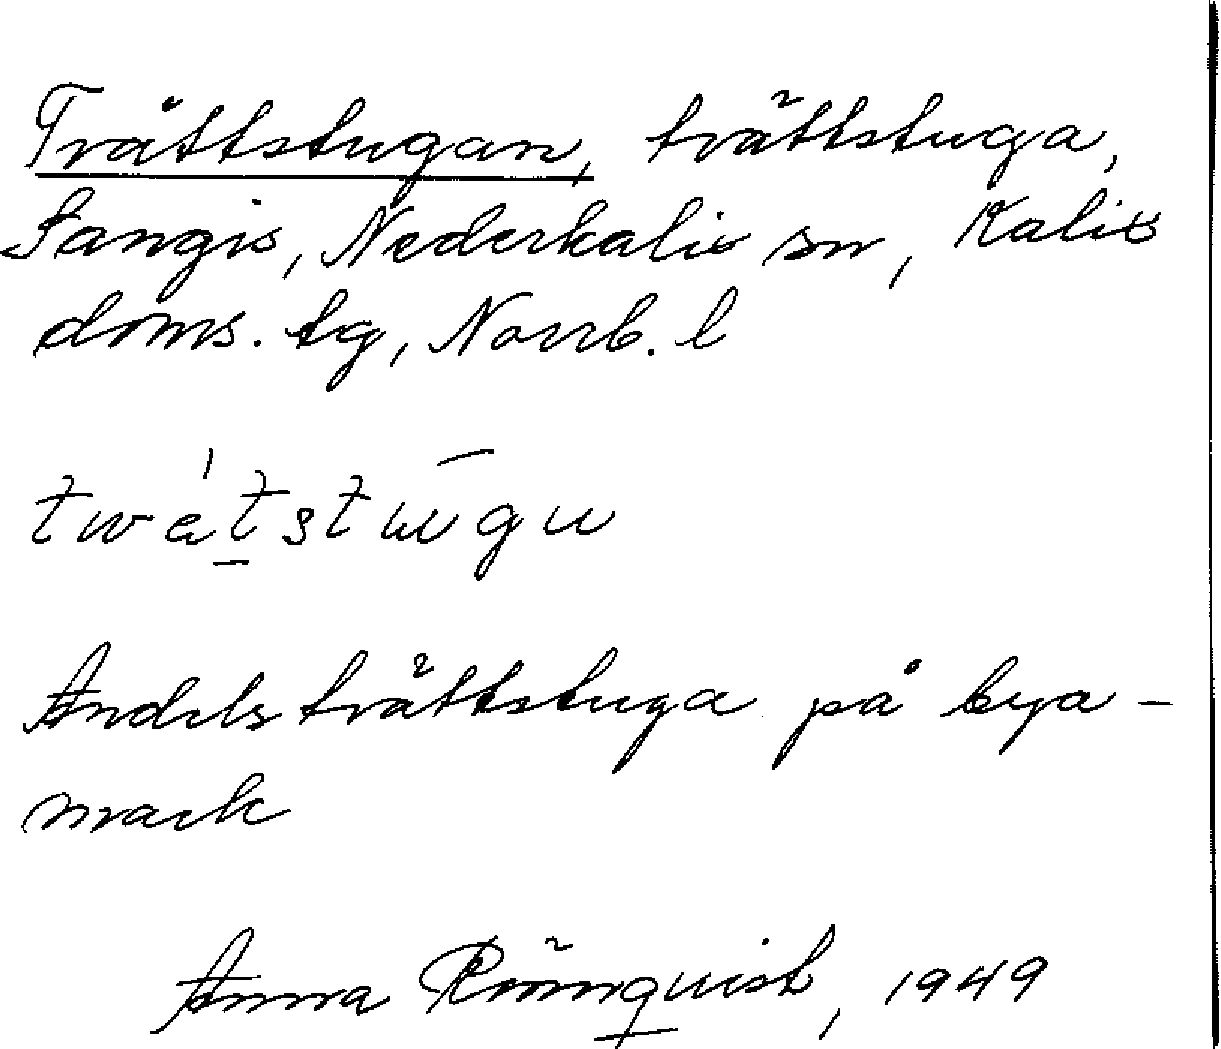 Tvättstugan, tvättstuga,
Sangis, Nederkalix sn, Kalix
doms. tg, Norrb. l
Andelstvättstuga på bya-
mark
Anna Rönnquist, 1949